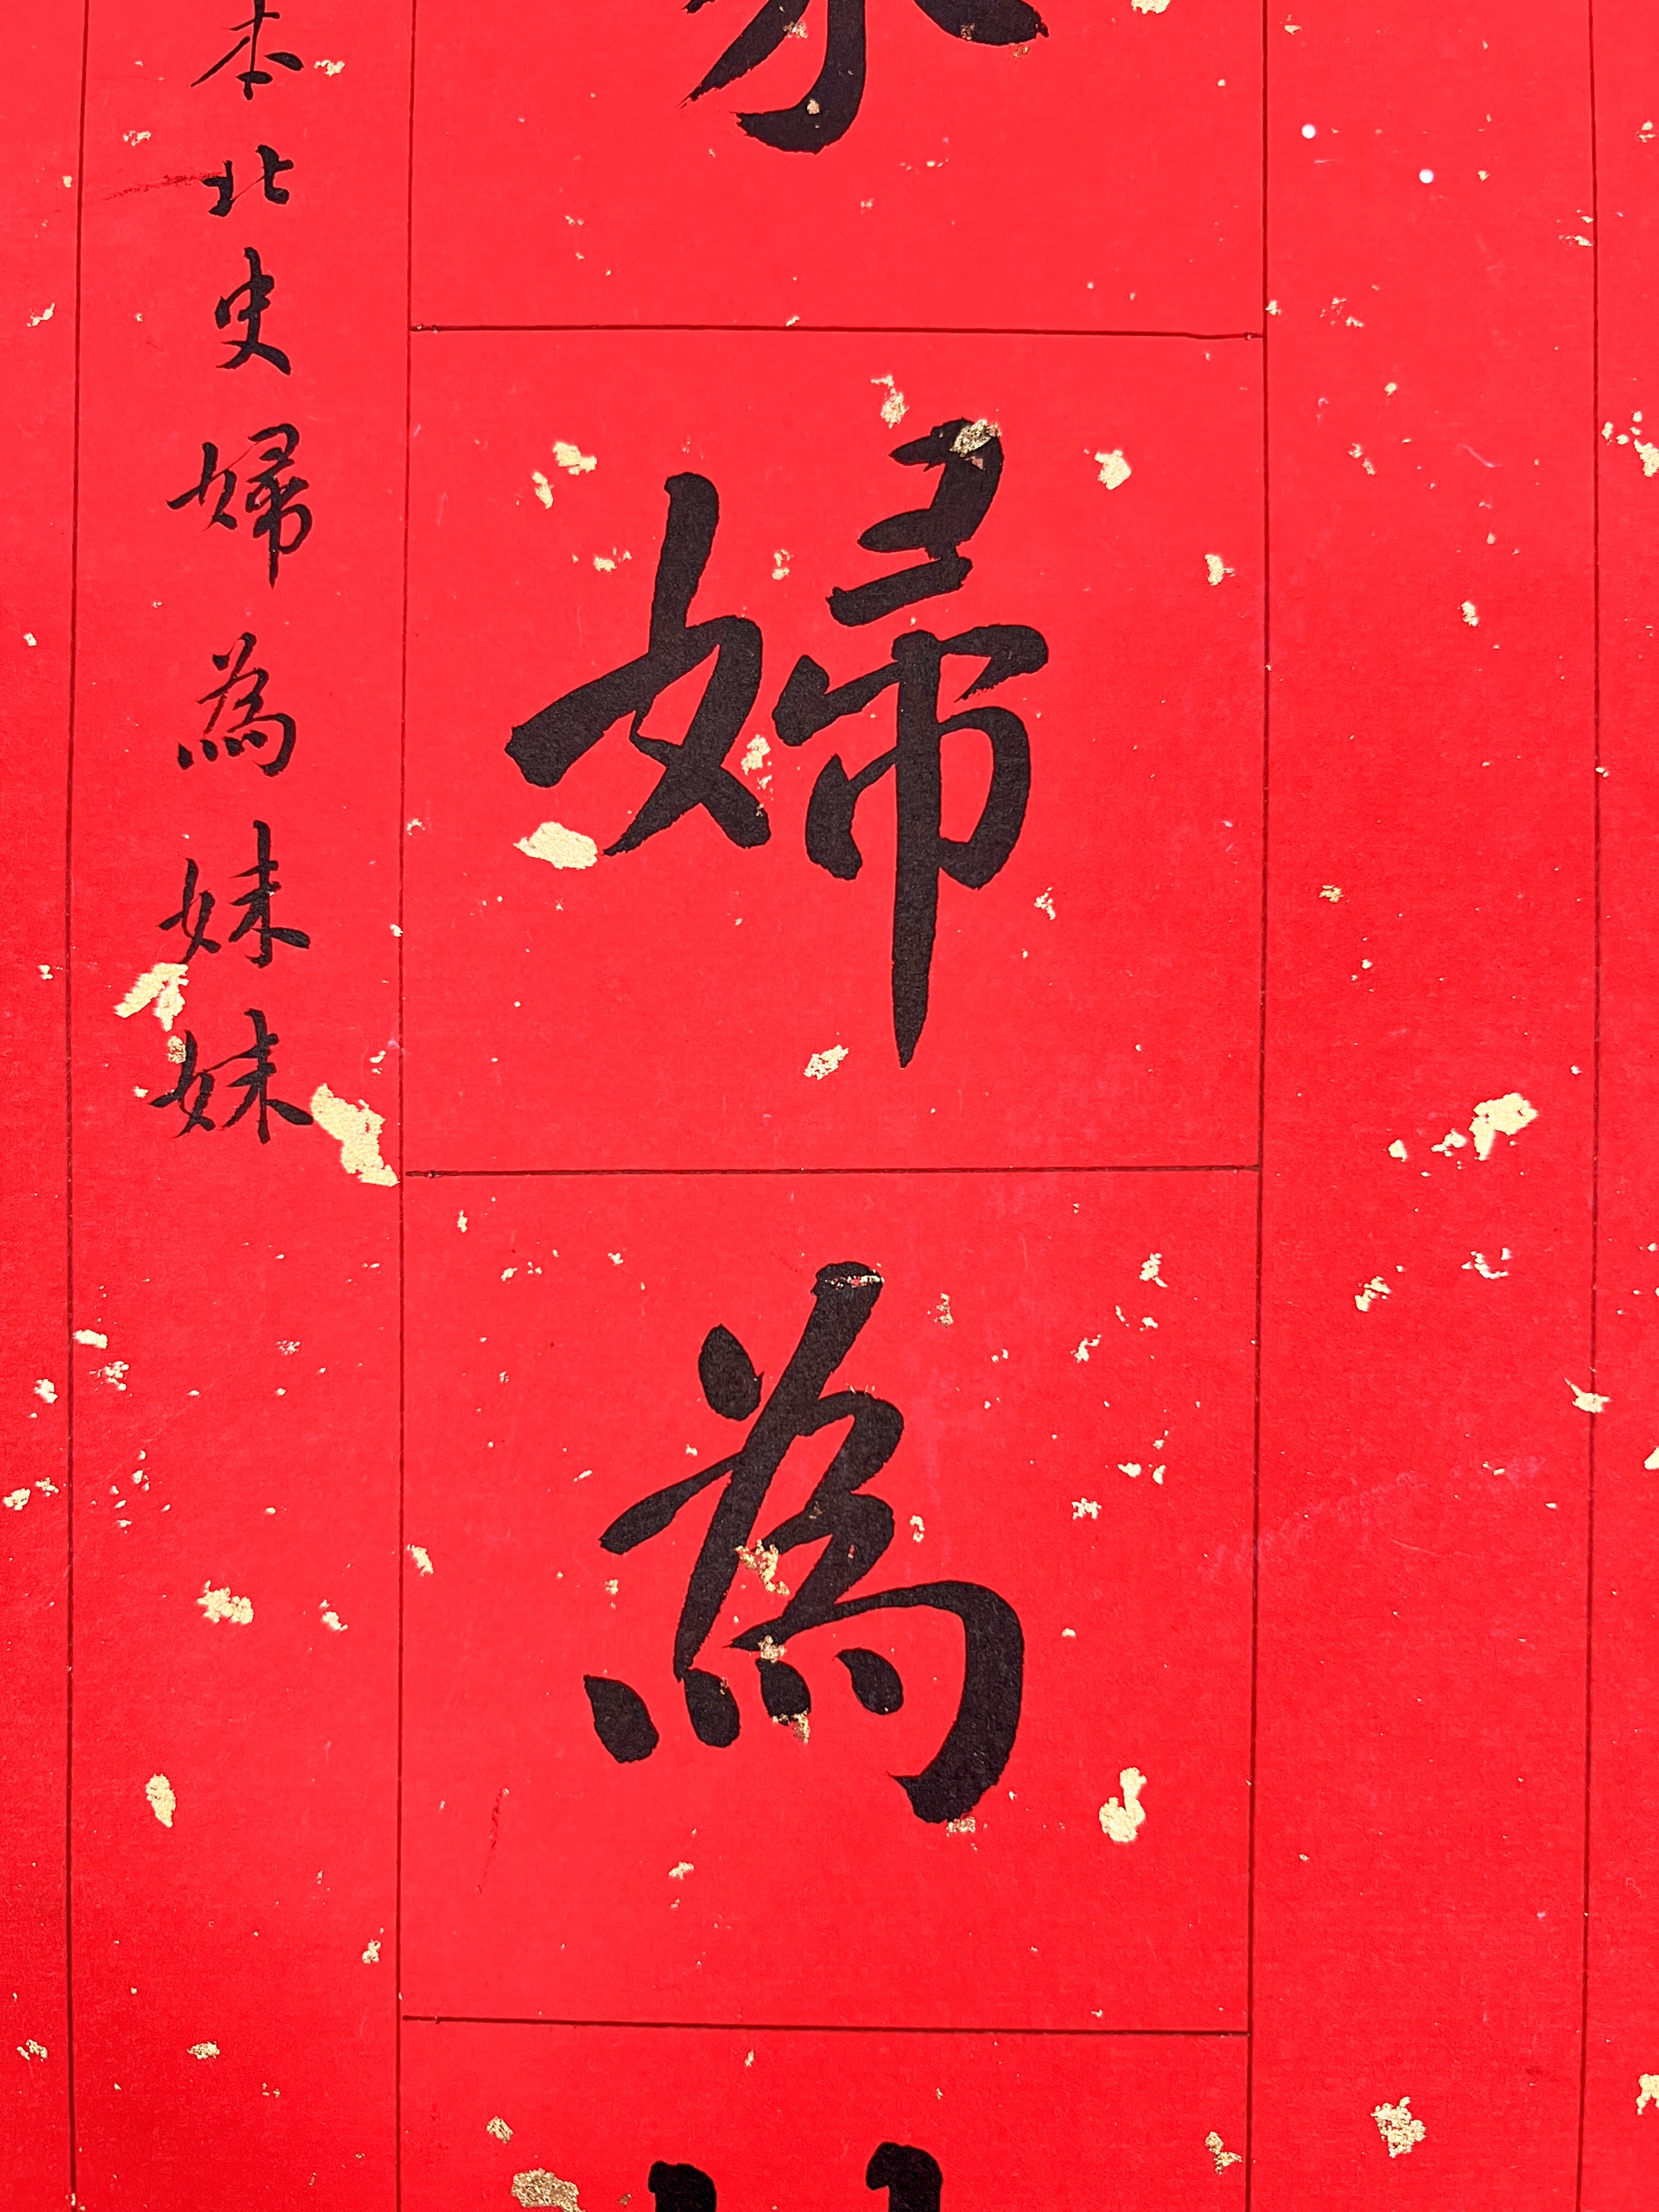 婦為
本北史婦為妹妹